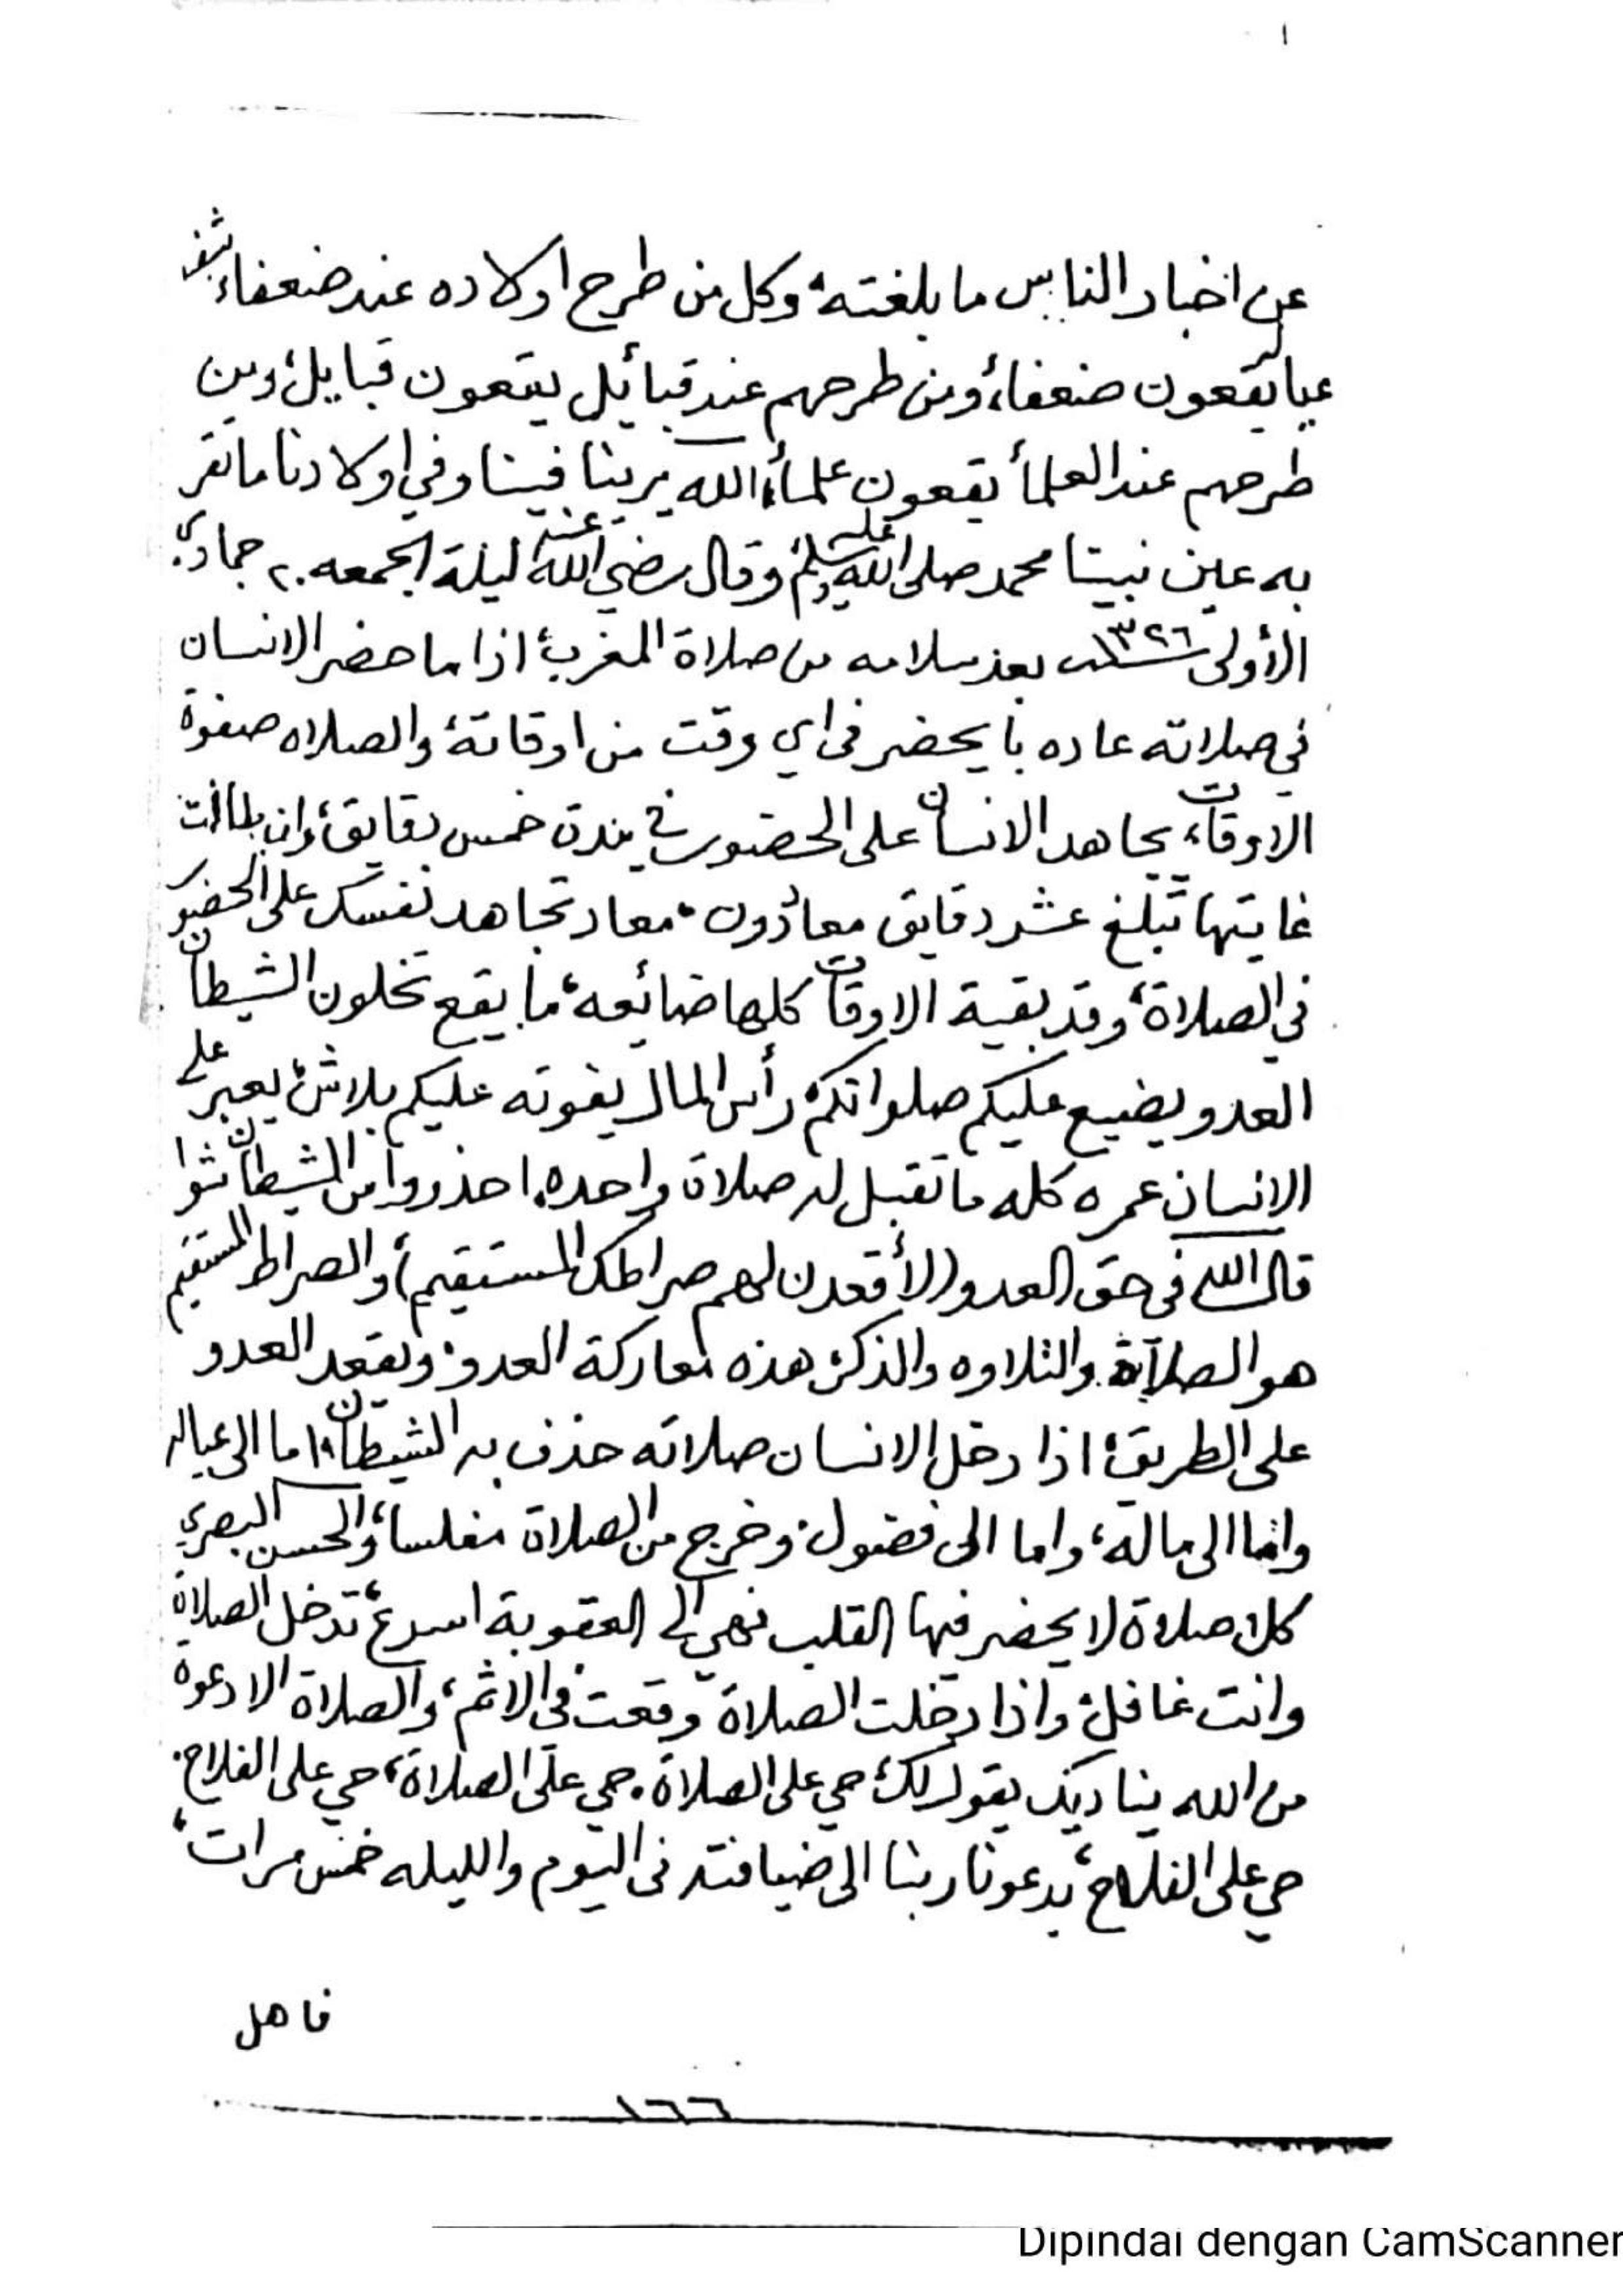 ١
عن اخبار الناس ما بلغته، وكل من طرح اولاده عند ضعفاء شف
عياله يقعون ضعفاء، ومن طرحهم عند قبائل يقعون قبايل، ومن
طرحهم عند العلمأ يقعون علمأ، الله يرينا فينا وفي اولادنا ما تقر
به عين نبينا محمد صلى الله عليه وسلم، وقال رضي الله عنه ليلة الجمعه ٢٠ جمادى
الأولى سنة ١٣٢٦ بعد سلامه من صلاة المغرب، اذا ما حضر الانسان
في صلاته عاده با يحضر في اي وقت من اوقاته، والصلاه صفوة
الاوقات، يجاهد الانسان على الحضور في مدة خمس دقايق، وان طالت
غايتها تبلغ عشر دقايق معا دون، معاد تجاهد نفسك على الحضور
في الصلاة، وقد بقية الاوقات كلها ضائعه، ما يقع تخلون الشيطان
العدو يضيع عليكم صلواتكم، رأس المال يفوته عليكم بلاش، يعبر على
الانسان عمره كله ما تقبل له صلاة واحده، احذروا من الشيطان شوا
قال الله في حق العدو ((لأقعدن لهم صراطك المستقيم)) والصراط المستقيم
هو الصلاة والتلاوه والذكر، هذه معاركة العدو، ويقعد العدو
على الطريق، اذا دخل الانسان صلاته حذف به الشيطان، اما الى عياله
واما الى ماله، واما الى فضول، وخرج من الصلاة مفلسا، والحسن البصري
كل صلاة لا يحضر فيها القلب فهي الى العقوبة اسرع، تدخل الصلاة
وانت غافل، واذا دخلت الصلاة وقعت في الاثم، والصلاة الا دعوة
من الله يناديك يقول لك، حي على الصلاة، حي على الصلاة، حي على الفلاح،
حي على الفلاح، يدعونا ربنا الى ضيافته في اليوم والليله خمس مرات،
فاهل
١٦٦
Dipindai dengan CamScanner